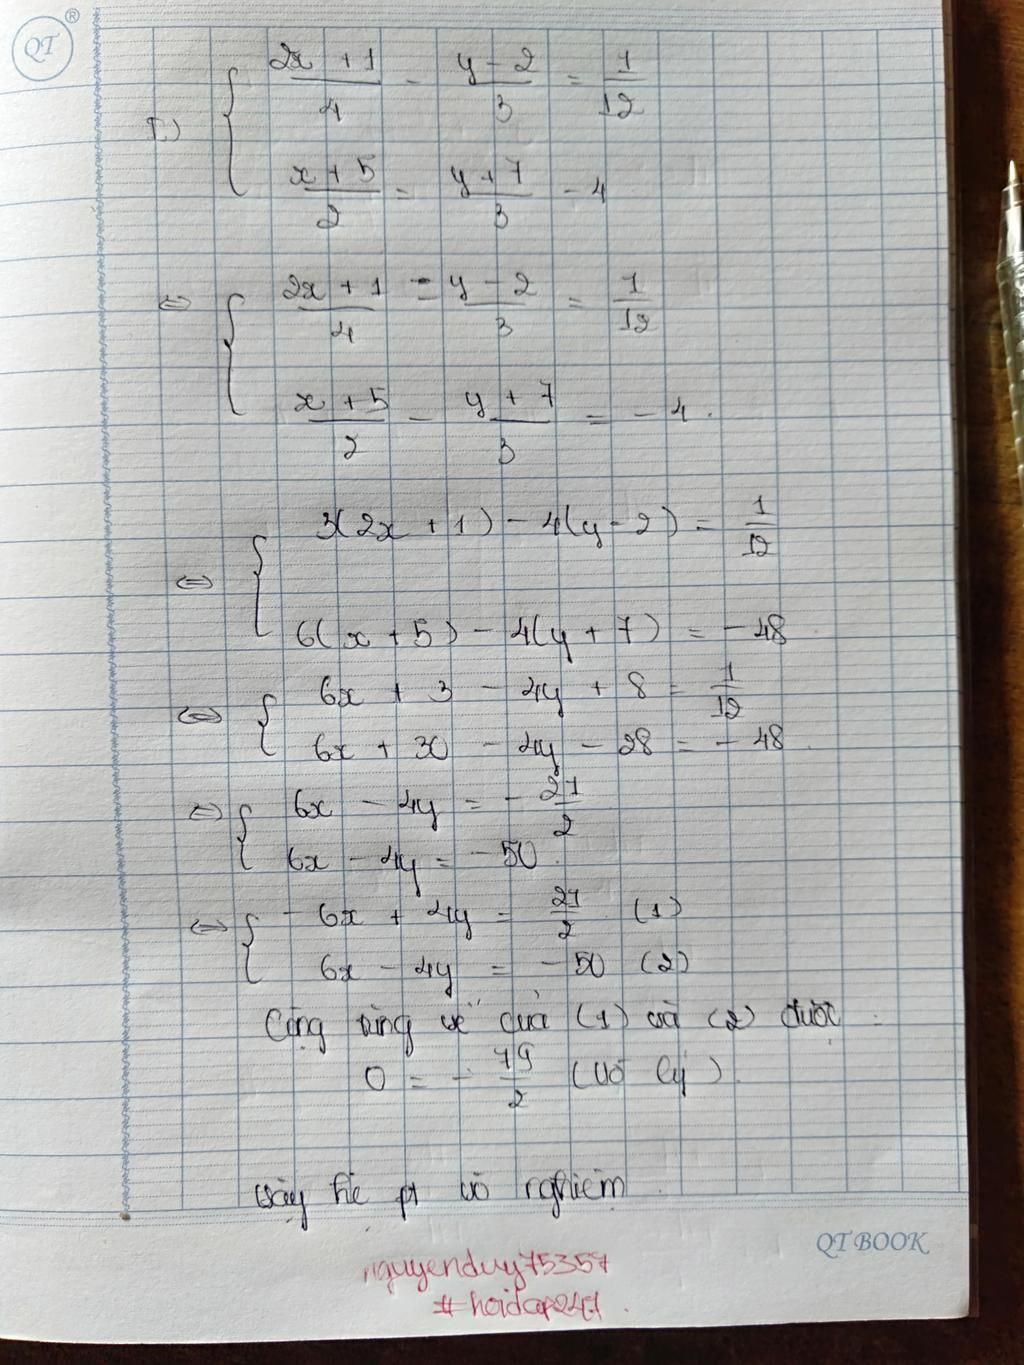 QT ®
I) { (2x + 1)/4 - (y - 2)/3 = 1/12
(x + 5)/2 = (y + 7)/3 - 4
⇔ { (2x + 1)/4 - (y - 2)/3 = 1/12
(x + 5)/2 - (y + 7)/3 = -4.
⇔ { 3(2x + 1) - 4(y - 2) = 1/12
6(x + 5) - 4(y + 7) = -48
⇔ { 6x + 3 - 4y + 8 = 1/12
6x + 30 - 4y - 28 = -48
⇔ { 6x - 4y = -21/2
6x - 4y = -50.
⇔ { -6x + 4y = 21/2 (1)
6x - 4y = -50 (2)
Cộng từng vế của (1) và (2) được:
0 = -79/2 (vô lý).
Vậy hệ pt vô nghiệm.
QT BOOK
nguyenduy75357
#hoidap247.